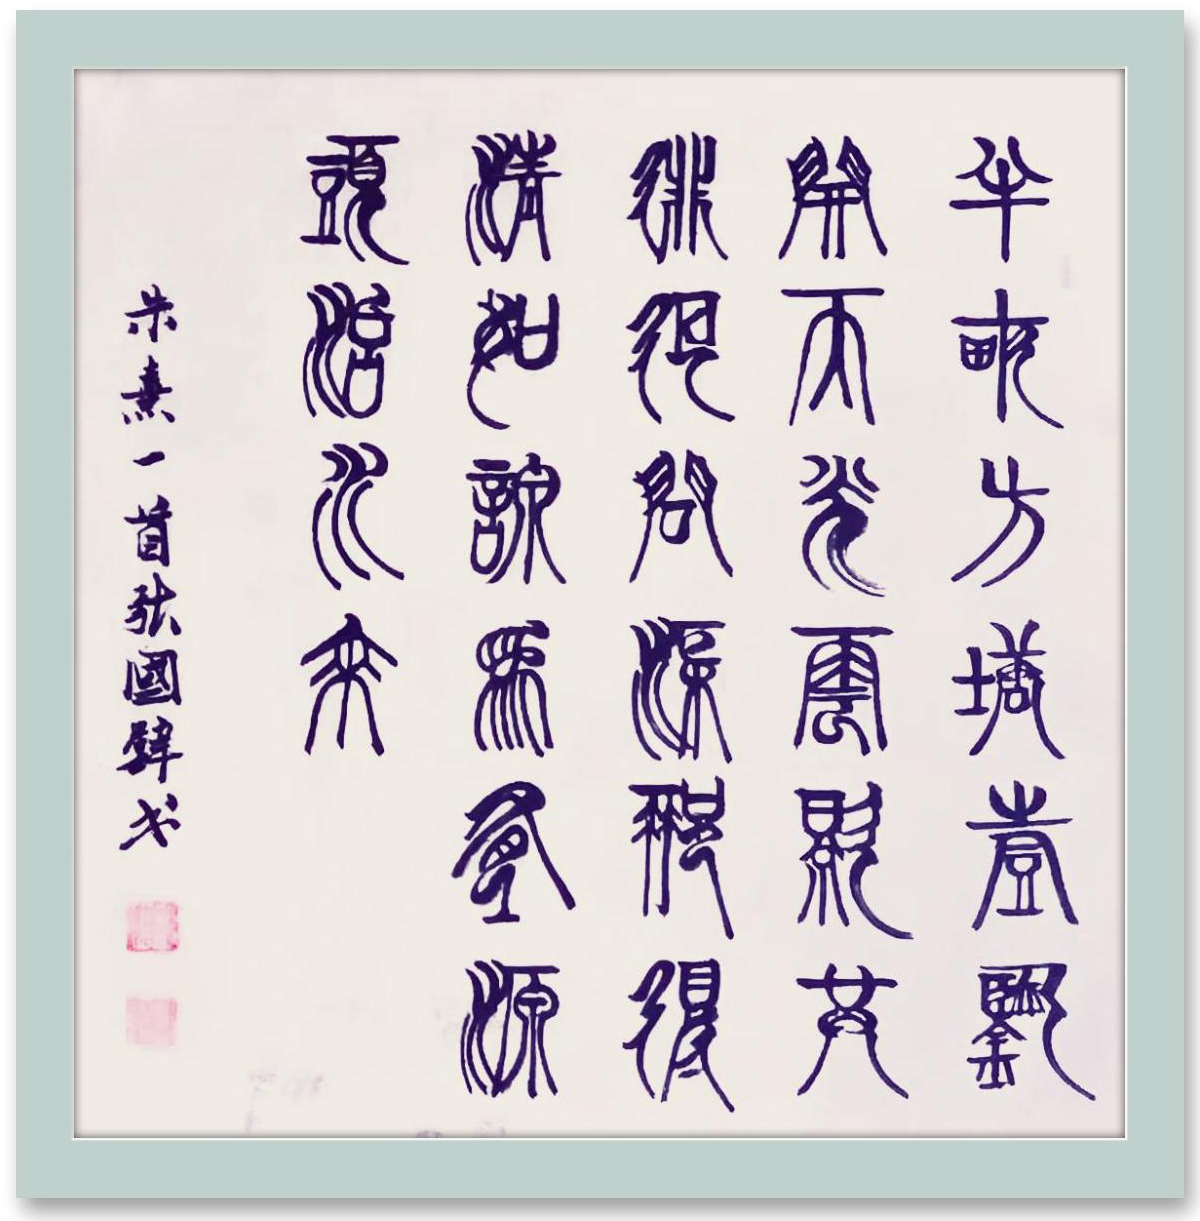 半畝方塘壹鑑
開天光雲影共
徘徊問渠那得
清如許為有源
頭活水來
朱熹一首张國书